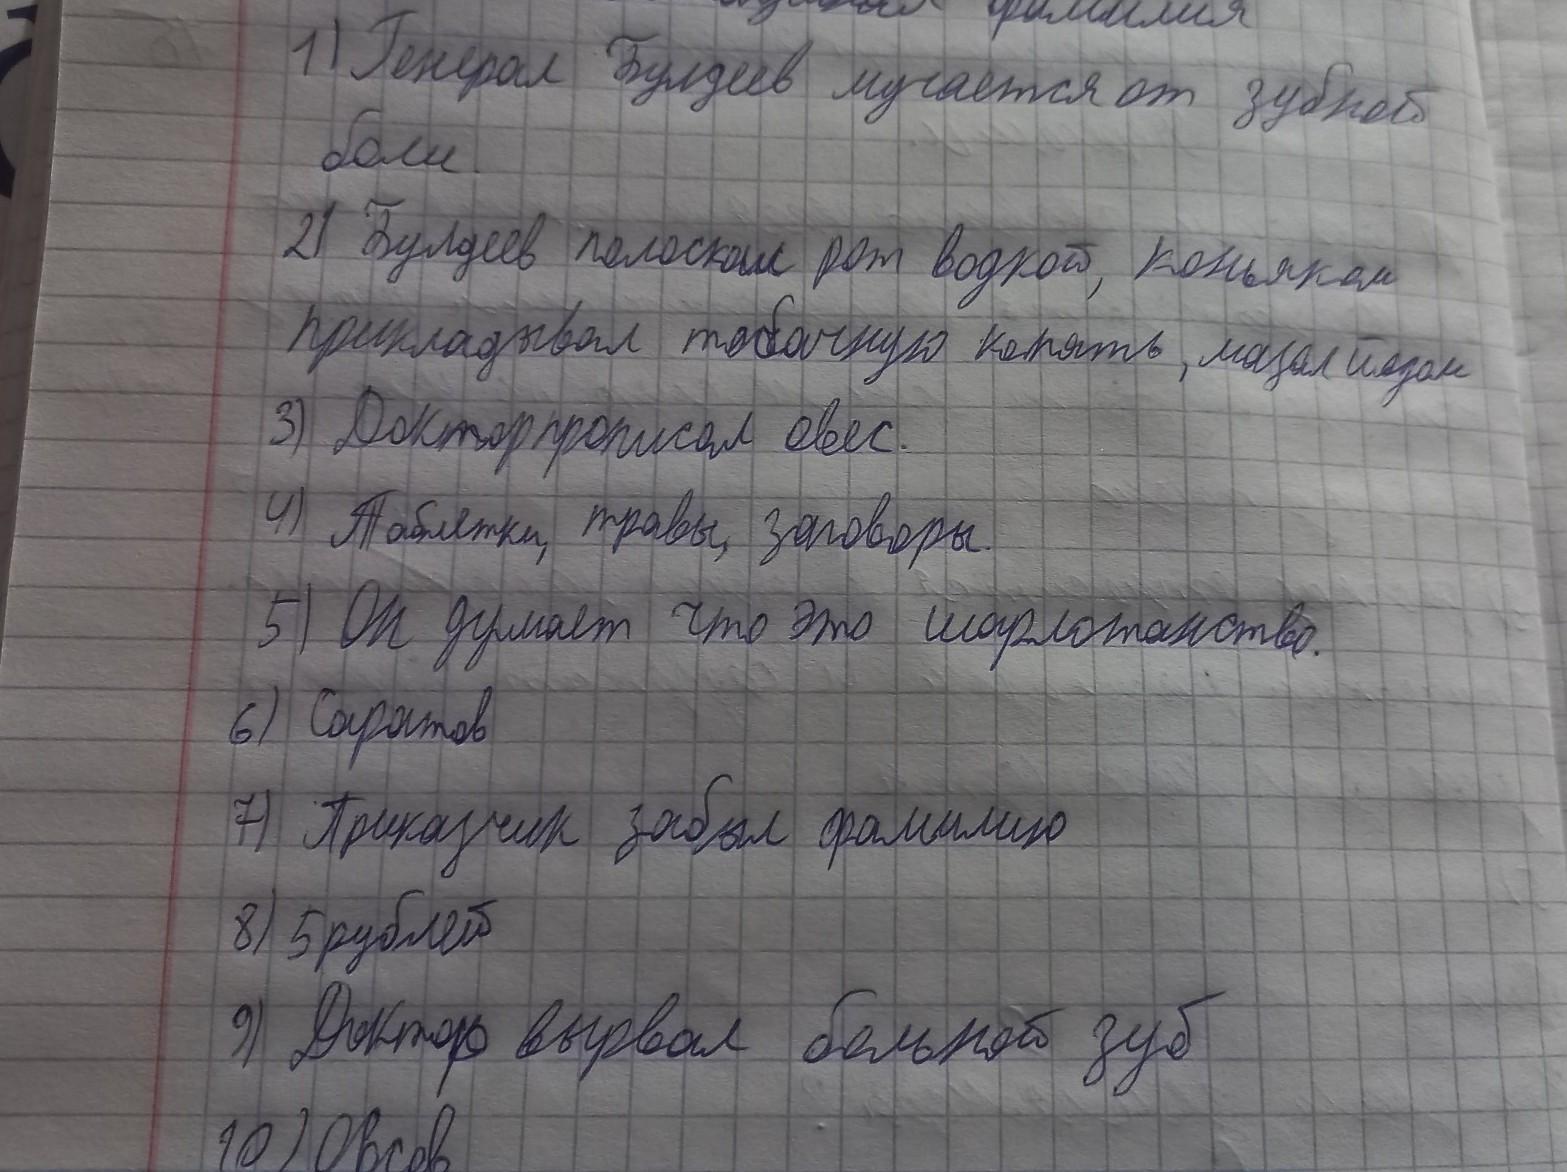 фамилия
1) Генерал Булдеев мучается от зубной
боли.
2) Булдеев полоскал рот водкой, коньяком
прикладывал табачную копять, мазал йодом
3) Доктор прописал овес.
4) Таблетки, травы, заговоры.
5) Он думает что это шарлотанство.
6) Саратов
7) Приказчик забыл фамилию
8) 5 рублей
9) Доктор вырвал больной зуб
10) Овсов